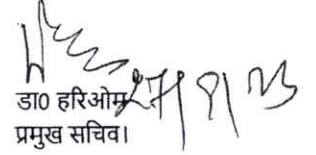 डा0 हरिओम
प्रमुख सचिव।